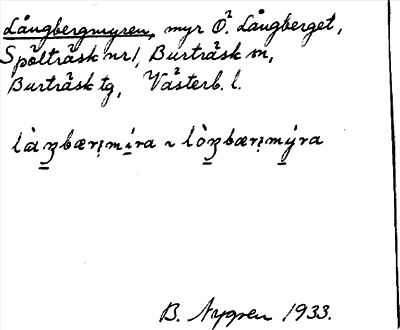 Långbergmyren, myr Ö. Långberget,
Spölträsk nr 1, Burträsk sn,
Burträsk tg, Västerb. l.
B. Nygren 1933.